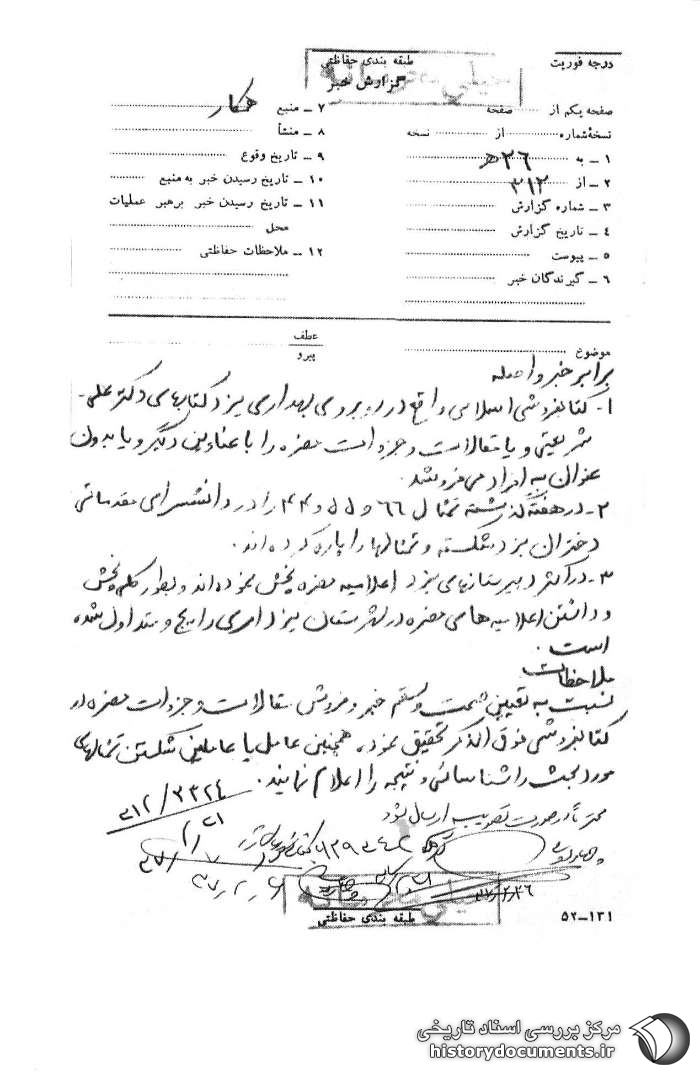 درجه فوریت
طبقه بندی حفاظتی
خیلی محرمانه
گزارش خبر
صفحه یکم از صفحه
نسخهٔ شماره از نسخه
۱ ـ به ۲۶ ه‍
۲ ـ از ۳۱۲
۳ ـ شماره گزارش
۴ ـ تاریخ گزارش
۵ ـ پیوست
۶ ـ گیرندگان خبر
۷ ـ منبع همکار
۸ ـ منشأ
۹ ـ تاریخ وقوع
۱۰ ـ تاریخ رسیدن خبر به منبع
۱۱ ـ تاریخ رسیدن خبر برهبر عملیات
محل
۱۲ ـ ملاحظات حفاظتی
موضوع
عطف
پیرو
برابر خبر واصله
۱- کتابفروشی اسلامی واقع در روبروی بهداری یزد کتابهای دکتر علی-
شریعتی و یا مقالات و جزوات مضره را با عناوین دیگر و یا بدون
عنوان به افراد می فروشد.
۲- در هفته گذشته تمثال ۶۶ و ۵۵ و ۴۴ را در دانشسرای مقدماتی
دختران یزد شکسته و تمثالها را پاره کرده اند.
۳- در اکثر دبیرستانهای یزد اعلامیه مضره پخش نموده اند و بطور کلی پخش
و داشتن اعلامیه های مضره در شهرستان یزد امری رایج و متداول شده
است.
ملاحظات
نسبت به تعیین صحت و سقم خبر و فروش مقالات و جزوات مضره در
کتابفروشی فوق الذکر تحقیق نموده همچنین عامل یا عاملین شکستن تمثالهای
مورد بحث را شناسائی و نتیجه را اعلام نمایند.
۳۱۲/۳۳۲۴
محترماً در صورت تصویب ارسال شود
خیلی محرمانه
طبقه بندی حفاظتی
۵۲-۱۳۱
مرکز بررسی اسناد تاریخی
historydocuments.ir